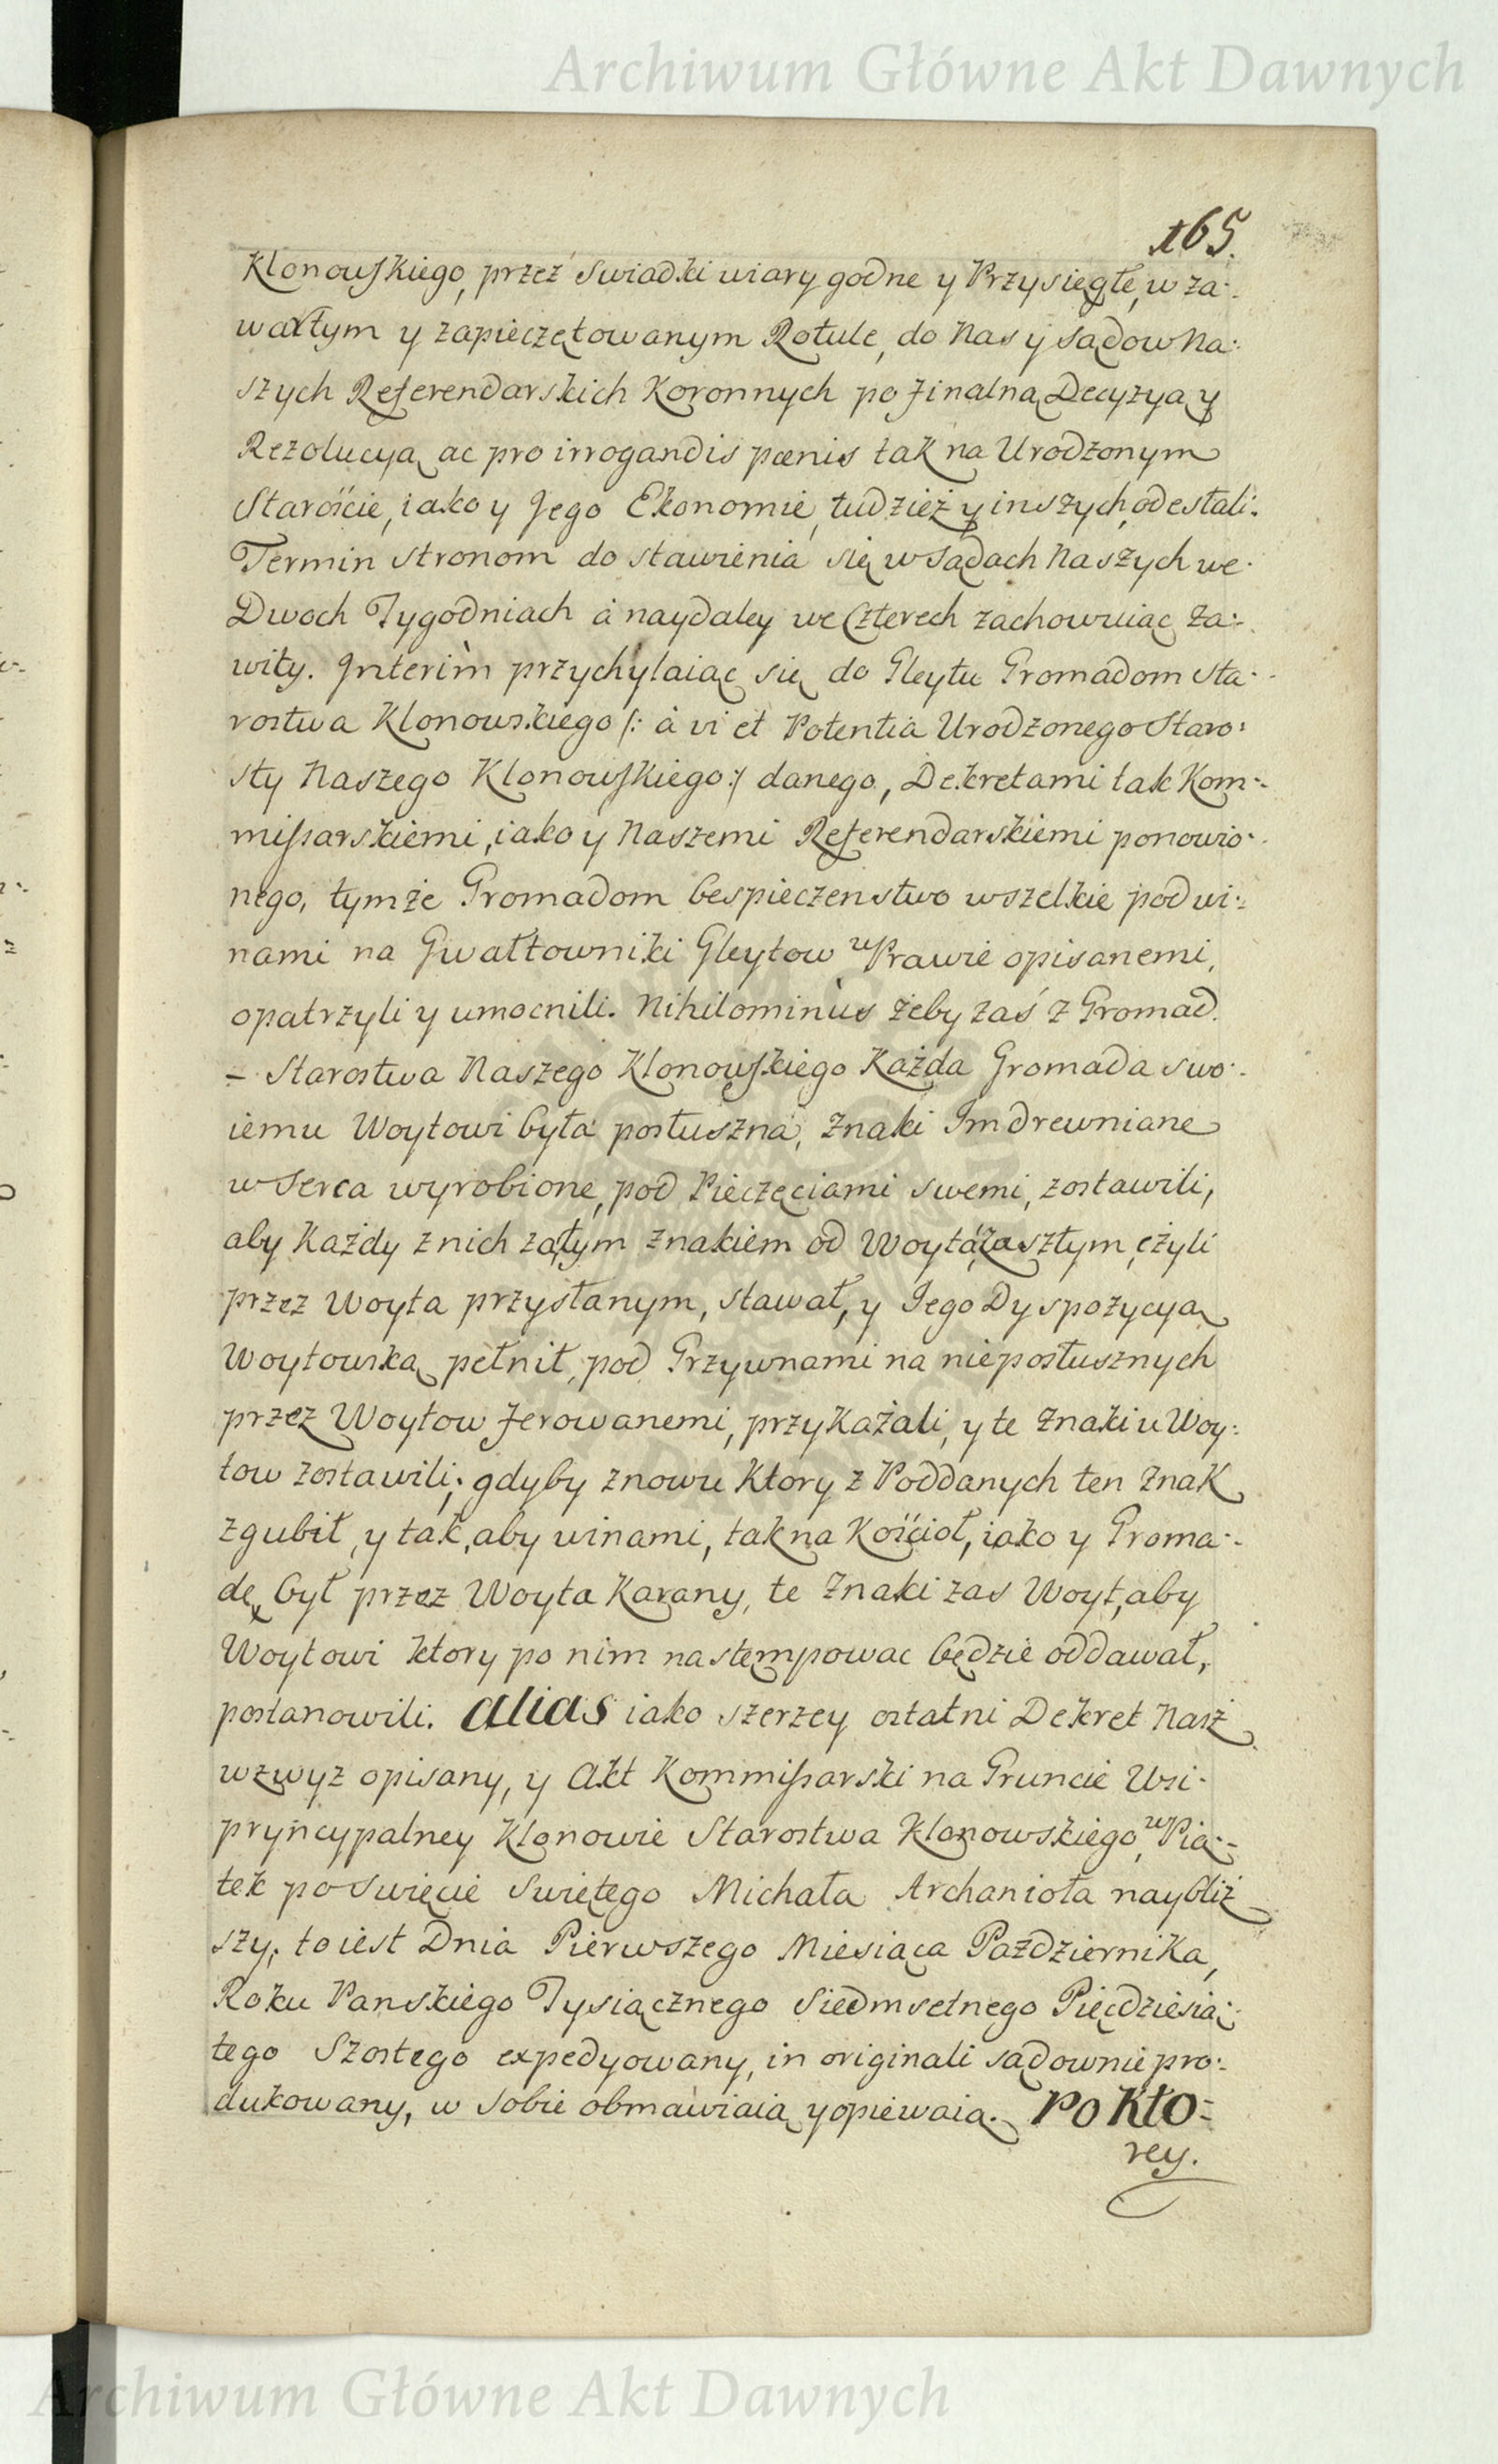 Archiwum Główne Akt Dawnych
165.
Klonowskiego, przez swiadki wiary godne y Przysięgłe, w za:
wartym y zapieczętowanym Rotule, do Nas y Sądow Na:
szych Referendarskich Koronnych po finalną Decyzyą y
Rezolucyą ac pro irrogandis pœnis tak na Urodzonym
Staroście, iako y Jego Ekonomie, tudzież y inszych, odesłali.
Termin stronom do stawienia się w Sądach Naszych we
Dwoch Tygodniach á naydaley we Czterech zachowuiąc Za:
wity. Interim przychylaiąc się do Gleytu Gromadom Sta:
rostwa Klonowskiego /: à vi et Potentia Urodzonego Staro:
sty Naszego Klonowskiego :/ danego, Dekretami tak Kom:
missarskiemi, iako y Naszemi Referendarskiemi ponowio:
nego, tymże Gromadom bespieczenstwo wszelkie pod wi:
nami na Gwałtowniki Gleytow w Prawie opisanemi,
opatrzyli y umocnili. Nihilominus żeby zaś z Gromad
– Starostwa Naszego Klonowskiego Każda Gromada swo:
iemu Woytowi była posłuszna, Znaki Im drewniane
w Serca wyrobione, pod Pieczęciami swemi, zostawili,
aby Każdy z nich za tym znakiem od Woyta zaszłym, czyli
przez Woyta przysłanym, stawał, y Jego Dyspozycyą
Woytowską pełnił, pod Grzywnami na nieposłusznych
przez Woytow ferowanemi, przykazali, y te Znaki u Woy:
tow zostawili; gdyby znowu Ktory z Poddanych ten Znak
zgubił, y tak, aby winami, tak na Kościoł, iako y Groma:
dę był przez Woyta Karany, te Znaki zas Woyt, aby
Woytowi ktory po nim nastempowac będzie oddawał,
postanowili. Alias iako szerzey ostatni Dekret Nasz
wzwyz opisany, y Akt Kommissarski na Gruncie Wsi
pryncypalney Klonowie Starostwa Klonowskiego, w Pią:
tek po Swięcie Swiętego Michała Archanioła naybliż
szy, to iest Dnia Pierwszego Miesiąca Października,
Roku Panskiego Tysiącznego Siedmsetnego Pięcdziesią:
tego Szostego expedyowany, in originali sądownie pro:
dukowany, w sobie obmawiaią y opiewaią. Po Kto:
rey.
Archiwum Główne Akt Dawnych